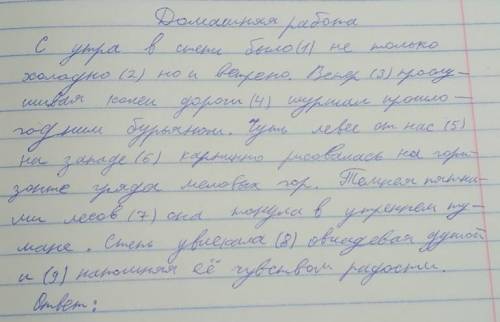 Домашняя работа
С утра в степи было (1) не только
холодно (2) но и ветрено. Ветер (3) прослу-
шивая колеи дороги (4) шуршал прошло-
годним бурьяном. Чуть левее от нас (5)
на западе (6) картинно рисовалась на гори-
зонте гряда меловых гор. Темнея пятна-
ми лесов (7) она тонула в утреннем ту-
мане. Степь увлекала (8) овладевая душой
и (9) наполняя её чувством радости.
Ответ: